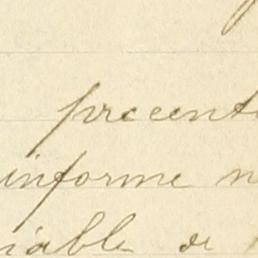 precent
informe n
iable de